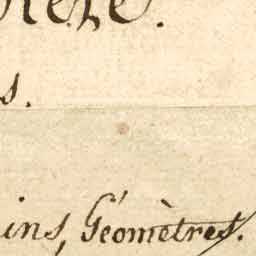 s.
ins, Géomètres.